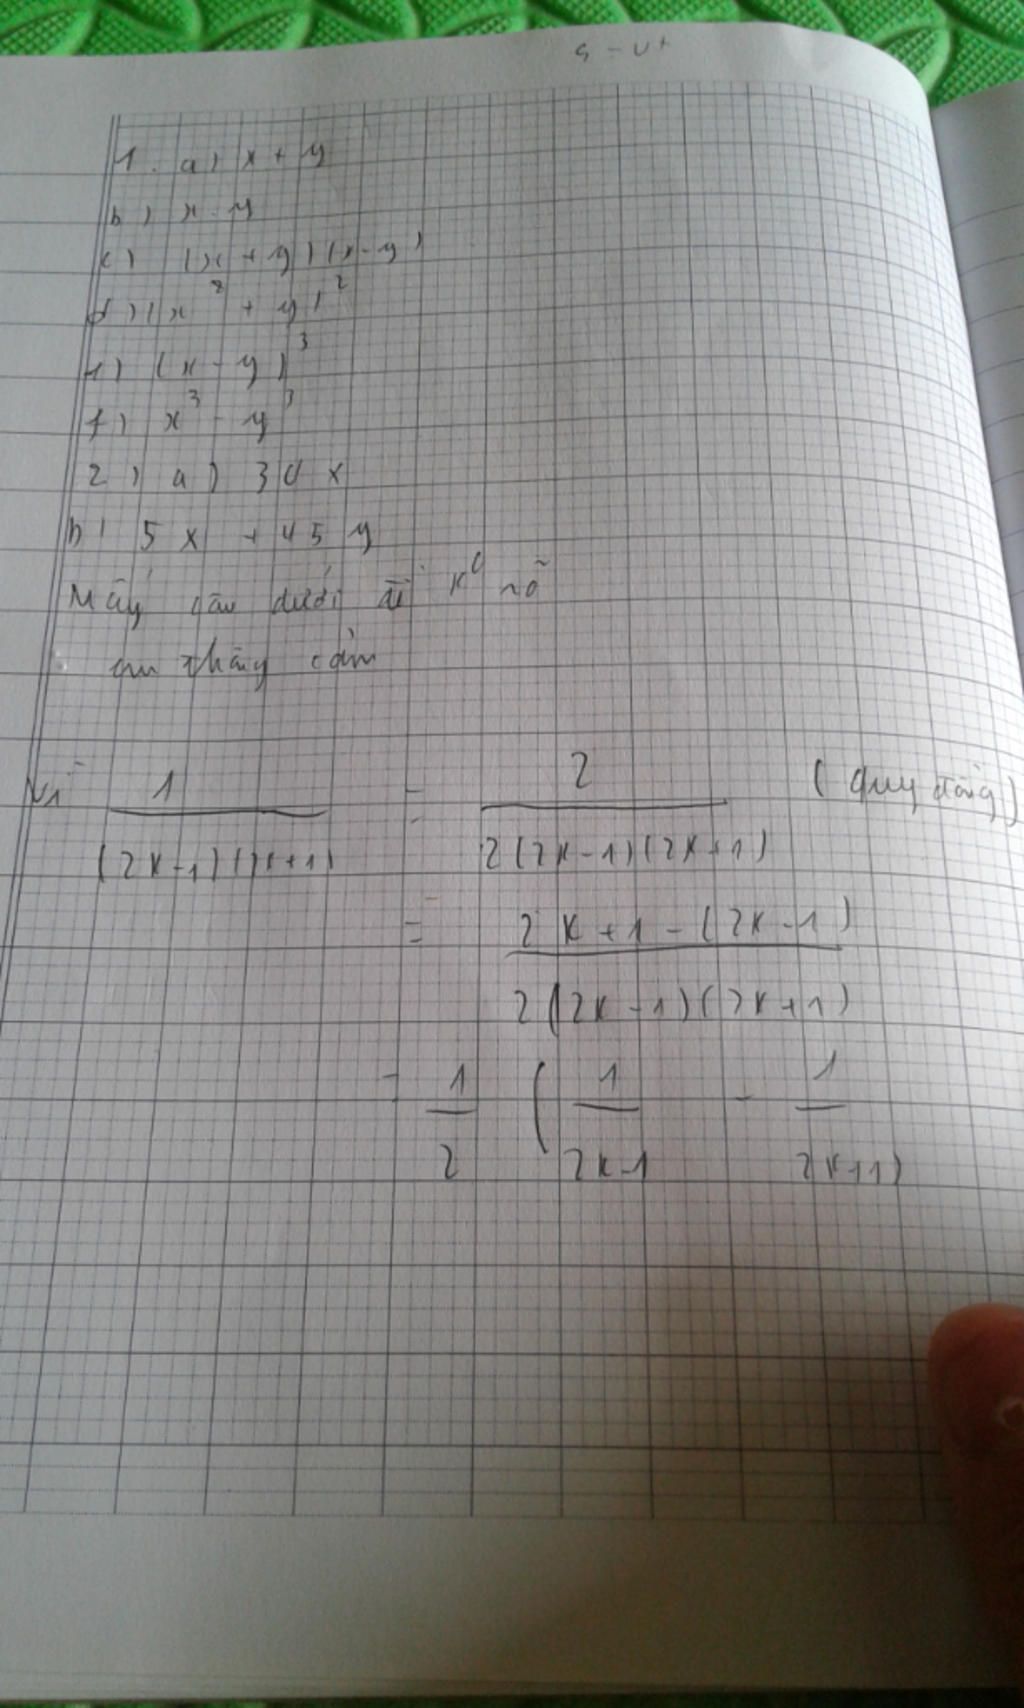 1. a) x + y
b) x - y
c) (x + y)(x - y)
d) (x² + y)²
e) (x - y)³
f) x³ - y³
2) a) 30x
b) 5x + 45y
Mấy câu dưới đề rõ
em thông cảm
Vì 1/((2k-1)(2k+1)) = 2/(2(2k-1)(2k+1)) (quy đồng)
= (2k+1-(2k-1))/(2(2k-1)(2k+1))
= 1/2 (1/(2k-1) - 1/(2k+1))